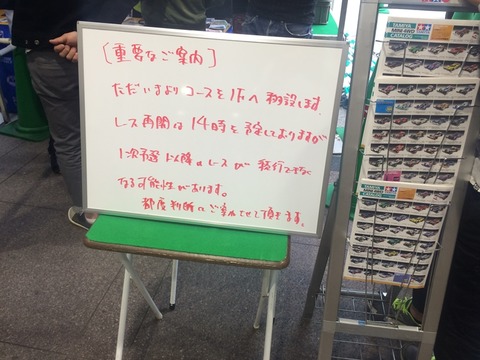 [重要なご案内]
ただいまよりコースを1Fへ移設します。
レース再開は14時を予定しておりますが
1次予選以降のレースが移行できなく
なる可能性があります。
都度判断しご案内させて頂きます。
TAMIYA
MINI 4WD
CATALOG
TAMIYA
MINI 4WD
CATALOG